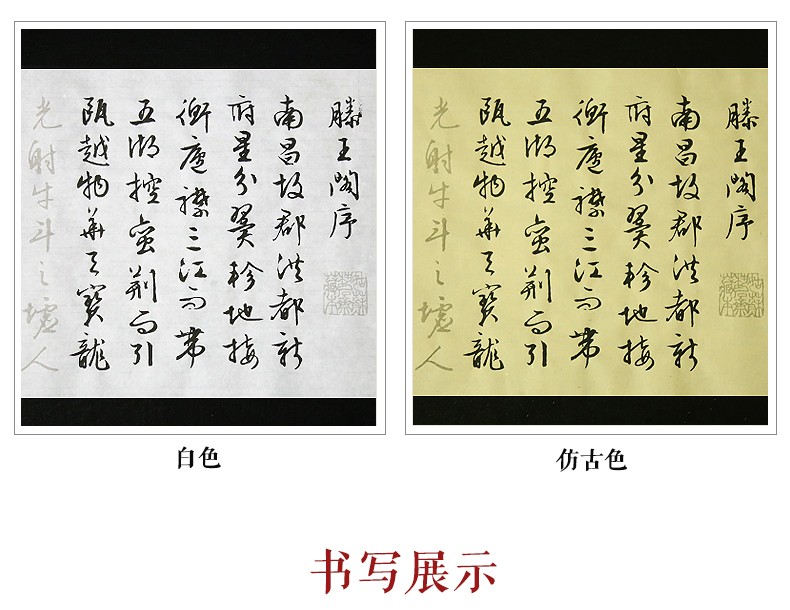 滕王閣序
南昌故郡洪都新
府星分翼軫地接
衡廬襟三江而帶
五湖控蠻荊而引
甌越物華天寶龍
光射牛斗之墟人
白色
滕王閣序
南昌故郡洪都新
府星分翼軫地接
衡廬襟三江而帶
五湖控蠻荊而引
甌越物華天寶龍
光射牛斗之墟人
仿古色
书写展示